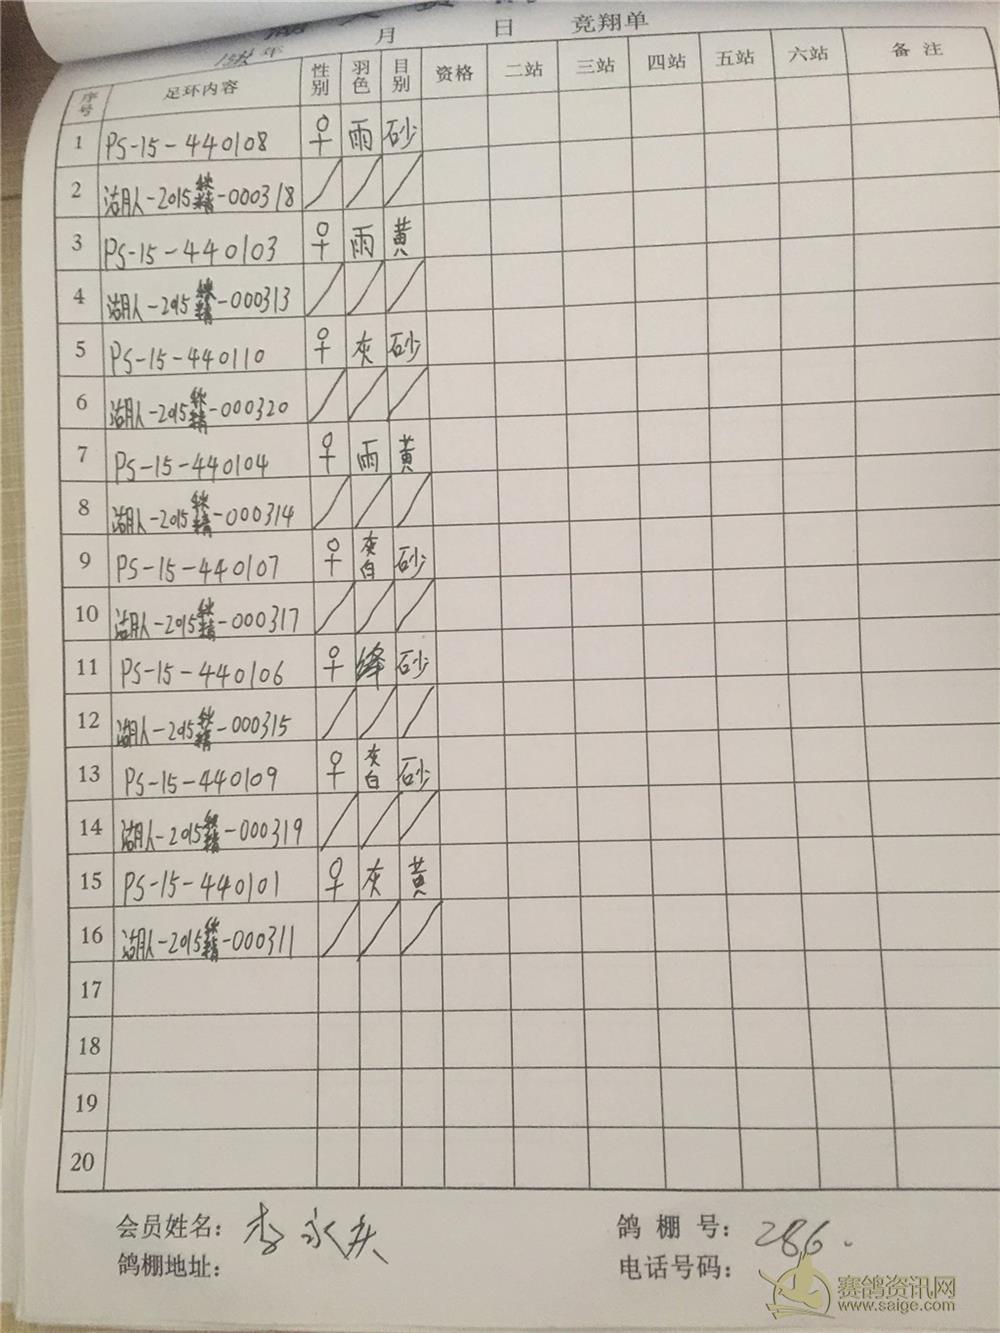 年 月 日 竞翔单
序号 足环内容 性别 羽色 目别 资格 二站 三站 四站 五站 六站 备注
1 PS-15-440108 ♀ 雨 砂
2 湖人-2015秋精-000318 / / /
3 PS-15-440103 ♀ 雨 黄
4 湖人-2015秋精-000313 / / /
5 PS-15-440110 ♀ 灰 砂
6 湖人-2015秋精-000320 / / /
7 PS-15-440104 ♀ 雨 黄
8 湖人-2015秋精-000314 / / /
9 PS-15-440107 ♀ 灰白 砂
10 湖人-2015秋精-000317 / / /
11 PS-15-440106 ♀ 绛 砂
12 湖人-2015秋精-000315 / / /
13 PS-15-440109 ♀ 灰白 砂
14 湖人-2015秋精-000319 / / /
15 PS-15-440101 ♀ 灰 黄
16 湖人-2015秋精-000311 / / /
17
18
19
20
会员姓名： 李永庆 鸽棚号： 286.
鸽棚地址： 电话号码：
赛鸽资讯网
www.saige.com